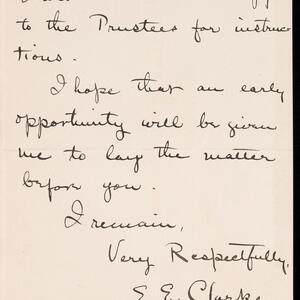 to the Trustees for instruc
tions.
I hope that an early
opportunity will be given
me to lay the matter
before you.
I remain,
Very Respectfully,
S. E. Clarke